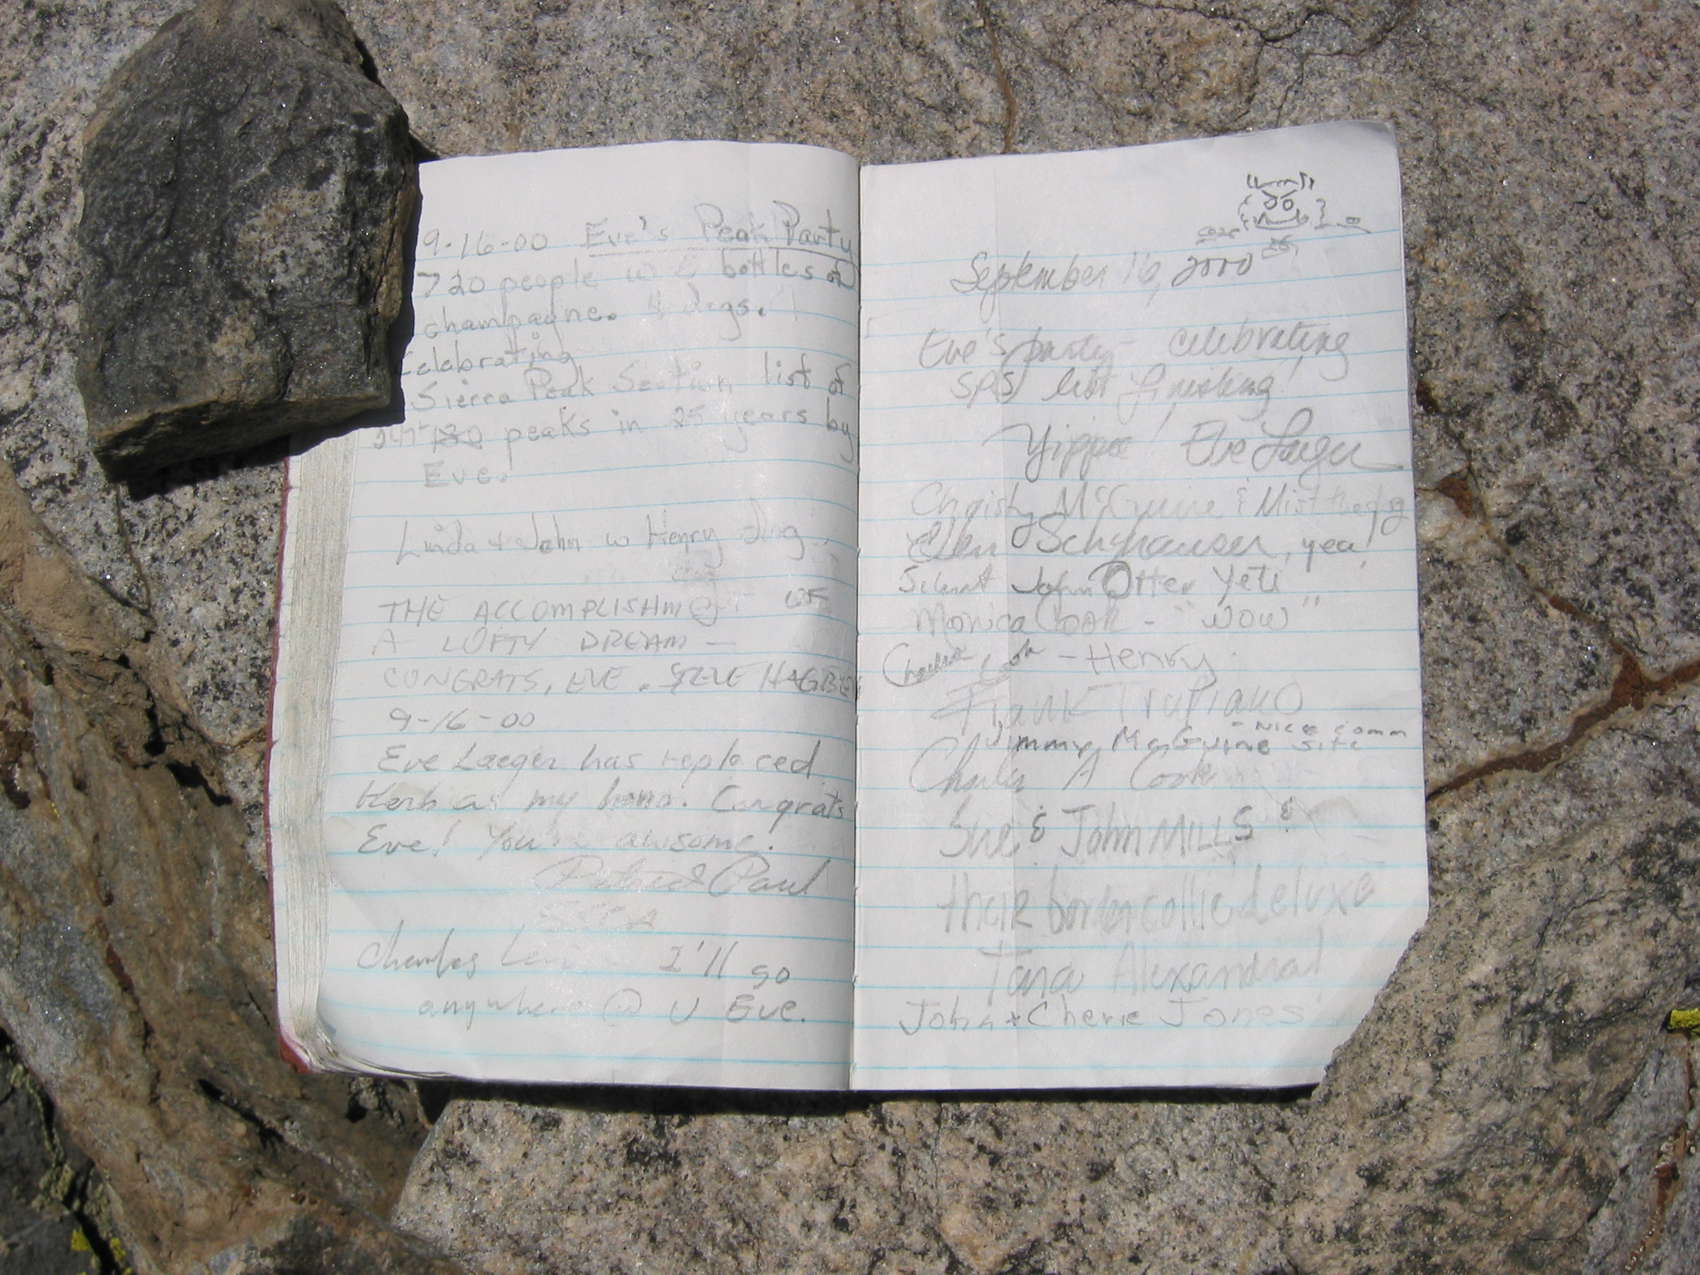 9-16-00 Eve's Peak Party
720 people w 6 bottles of
champagne. 4 dogs.
Celebrating
Sierra Peak Section list of
247 peaks in 25 years by
Eve.
Linda + John w Henry dog
THE ACCOMPLISHMENT OF
A LOFTY DREAM —
CONGRATS, EVE. STEVE
9-16-00
Eve Laeger has replaced
Herb as my hero. Congrats
Eve! You're awsome.
Patrick Paul
Charles I'll go
anywhere @ U Eve.
September 16, 2000
Eve's party - celebrating
SPS list finishing!
Yippee! Eve Laeger
Christy McGuire & Mist the dog
Ellen Schyhauser, yea!
John Otter Yeti
Monica Cook - "WOW"
- Henry
Frank Trupiano
Jimmy McGuire - NICE comm site
Charlie A Cook
Sue & John MILLS &
their border collie deluxe
Tara Alexandra!
John + Cherie Jones